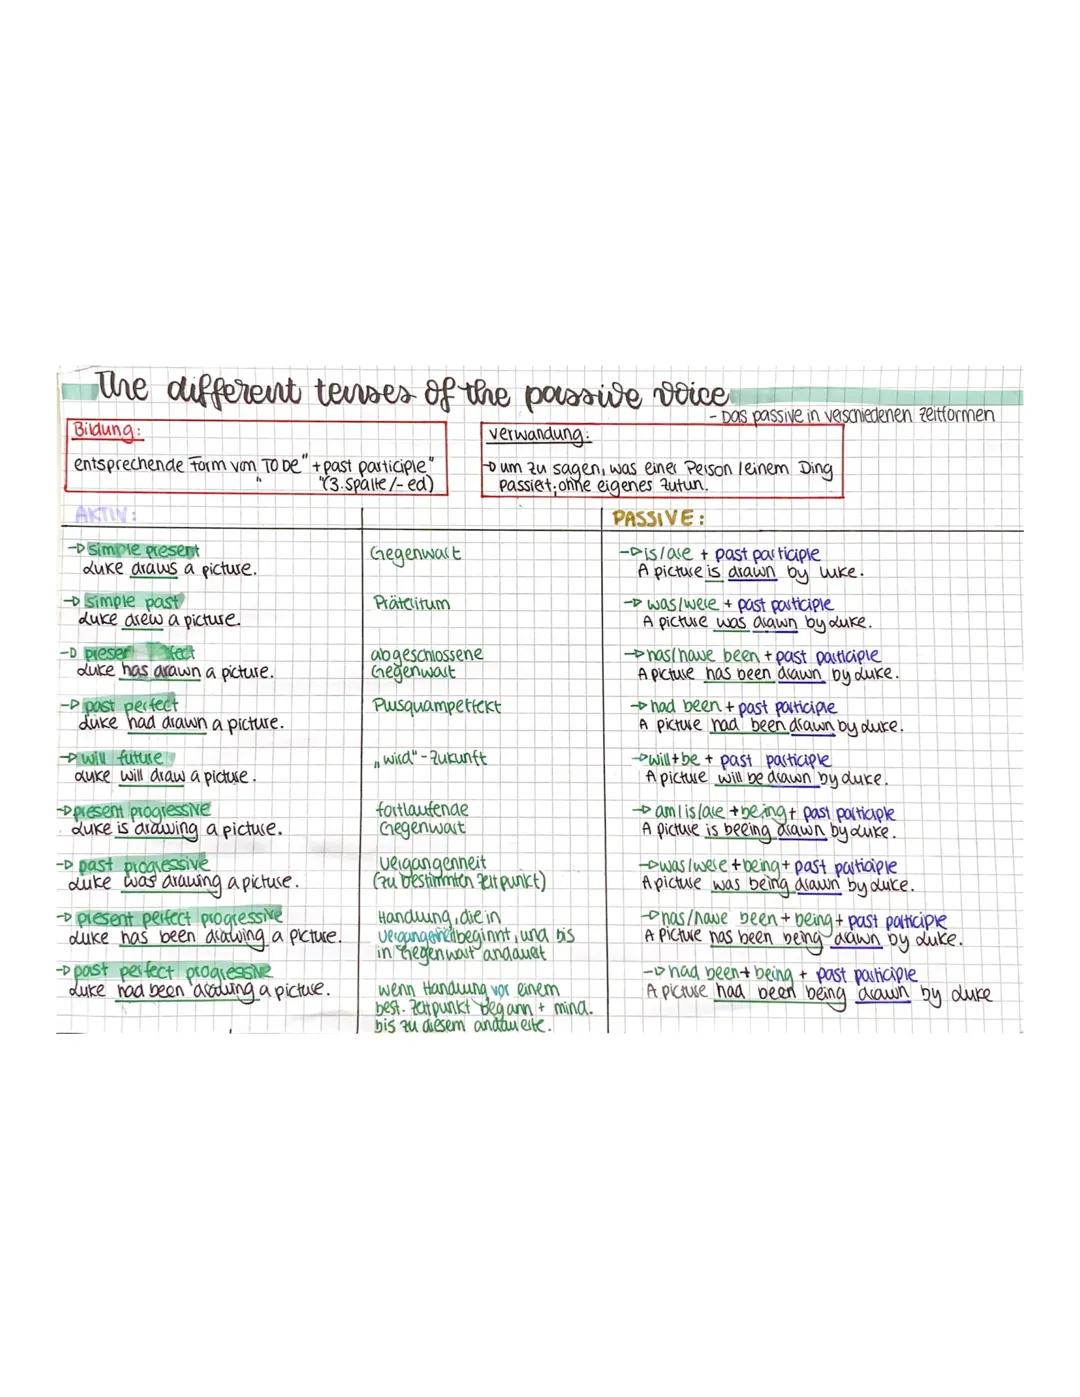 The different tenses of the passive voice
- Das passive in verschiedenen Zeitformen
Bildung:
entsprechende Form von "TO be" + "past participle"
(3. Spalte /-ed)
verwandung:
→ um zu sagen, was einer Person / einem Ding
passiert, ohne eigenes zutun.
AKTIV:
PASSIVE:
→ simple present
Luke draws a picture.
Gegenwart
→ is/are + past participle
A picture is drawn by Luke.
→ simple past
Luke drew a picture.
Präteritum
→ was/were + past participle
A picture was drawn by Luke.
→ presen fect
Luke has drawn a picture.
abgeschlossene
Gegenwart
→ has/have been + past participle
A picture has been drawn by Luke.
→ past perfect
Luke had drawn a picture.
Pusquamperfekt
→ had been + past participle
A picture had been drawn by Luke.
→ will future
Luke will draw a picture.
„wird" - Zukunft
→ will + be + past participle
A picture will be drawn by Luke.
→ present progressive
Luke is drawing a picture.
fortlaufende
Gegenwart
→ am/is/are + being + past participle
A picture is beeing drawn by Luke.
→ past progressive
Luke was drawing a picture.
Vergangenheit
(zu bestimmten Zeitpunkt)
→ was/were + being + past participle
A picture was being drawn by Luke.
→ present perfect progressive
Luke has been drawing a picture.
Handlung, die in
Vergangenheit beginnt, und bis
in Gegenwart andauert
→ has/have been + being + past participle
A picture has been being drawn by Luke.
→ past perfect progressive
Luke had been drawing a picture.
wenn Handlung vor einem
best. Zeitpunkt begann + mind.
bis zu diesem andauerte.
→ had been + being + past participle
A picture had been being drawn by Luke